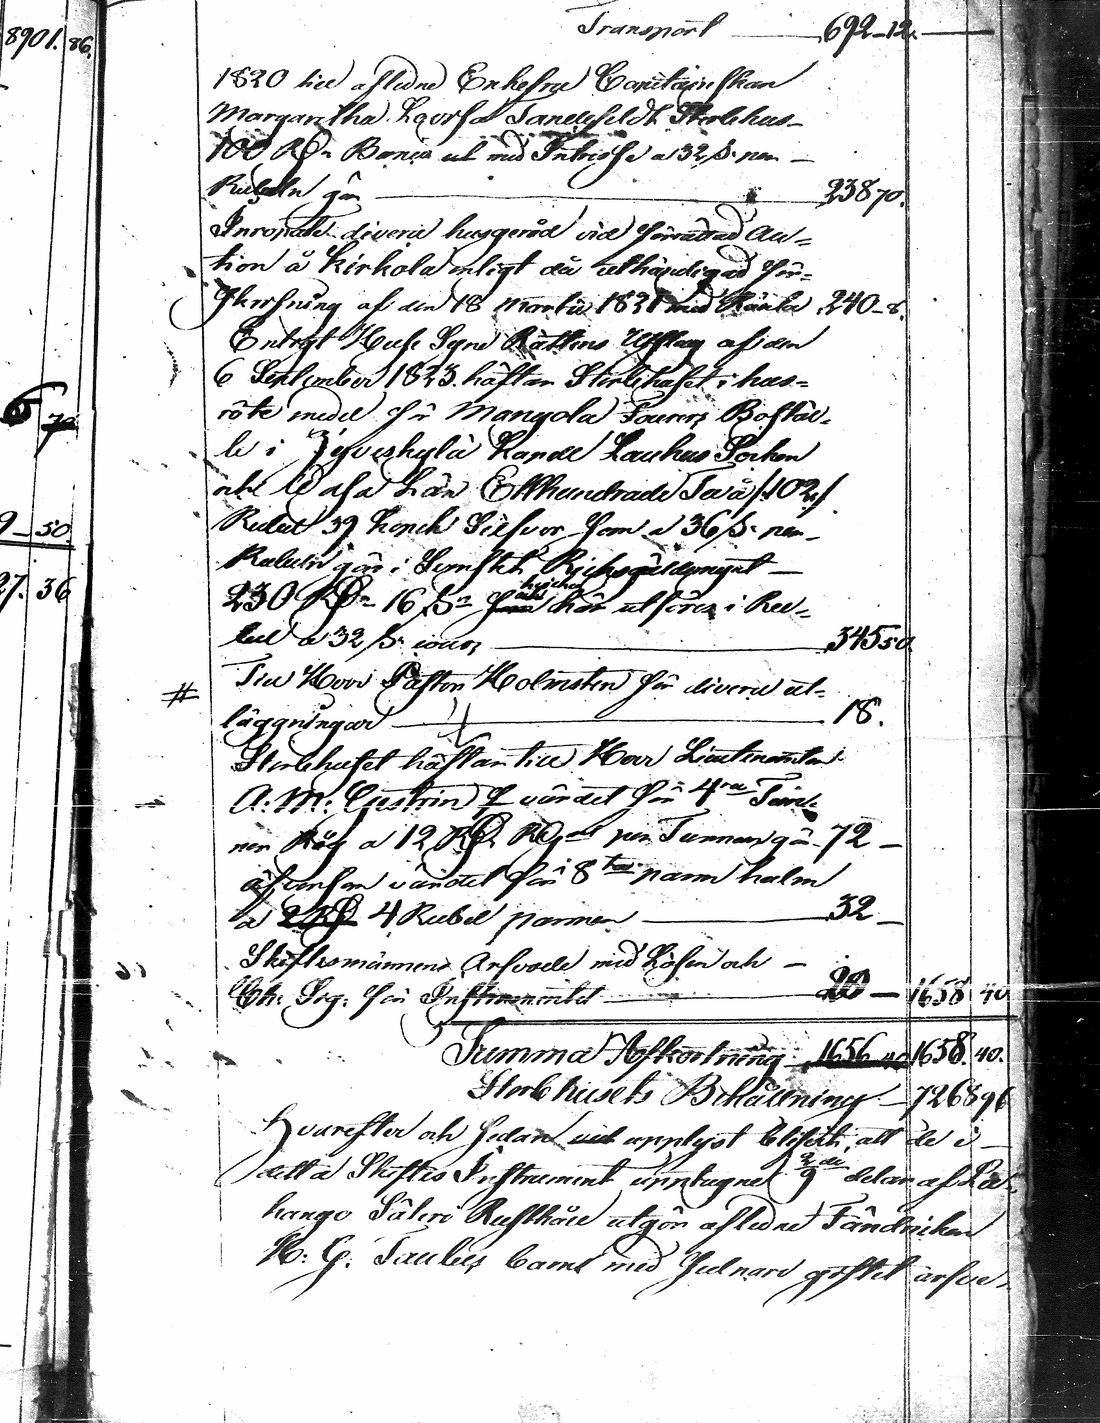 8901. 86.
Transport 692–12.
1820 till aflidne Enkefru Capitainskan
Margaretha Lovisa Tandefeldts Sterbhus
100 RD Banco med Intresse a 32 ß. pen
Rubeln gör 238 70.
Inropade diverse husgeråd vid förrättad Au=
tion å Kirkola enligt då uthändigad för=
skrifning af den 18 Martii 1821 med Ränta 240–8.
Enligt Husesyns Rättens Utslag af den
6 September 1823. häftar Sterbhuset i hus=
röte medel för Mangola Boställe=
le i Jyveskylä Laukas Socken
och Wasa Län Etthundrade Två /:102:/
Rubel 39 kopek Silfver som a 36 ß. pen
Rubeln gör i Svenskt Riksgäldsmynt
230 RD 16 ß här utföres i Ru=
bel a 32 ß. 345 50.
# Till Herr Pastor Holmsten för diverse ut=
läggningar 18.
Sterbhuset häftar till Herr Lieutenanten
A: M: värdet för 4ra Tun=
nor Råg a 12 RD per Tunnan gör 72 –
äfvensom värdet för 8 parm halm
a 4 Rubel parmen 32 –
Skiftesmännens Arfvode med Lösen och
Ch: Sig: för Instrumentet 20 – 1658 40
Summa Afkortning 1656 40 1658. 40.
Sterbhusets Behållning 7268 96
Hvarefter och sedan upplyst blifvit, att de i
detta Skiftes Instrument upptagne delar af
Säteri Rusthåll utgör aflidne Fändricken
K: G. Taubes barns med sednare giftet arfve=
6 70
9–50
27. 36